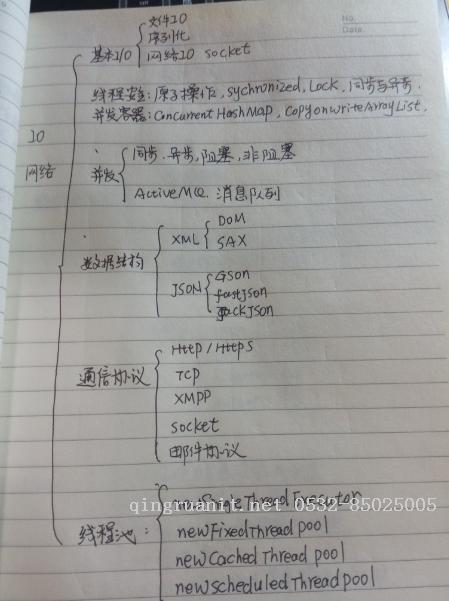 No.
Date.
文件IO
基本I/O 序列化
网络IO socket
线程安全:原子操作, sychronized, Lock, 同步与异步
并发容器: Concurrent HashMap, CopyonwriteArrayList,
IO
网络
同步、异步, 阻塞, 非阻塞
并发
ActiveMQ. 消息队列
DOM
XML
SAX
数据结构
Gson
JSON fastJson
JackJson
Http / Https
通信协议 TCP
XMPP
socket
邮件协议
qingruanit.net 0532-85025005
newSingle Thread Executor
线程池: newFixedThread pool
newCached Thread pool
newScheduled Threadpool